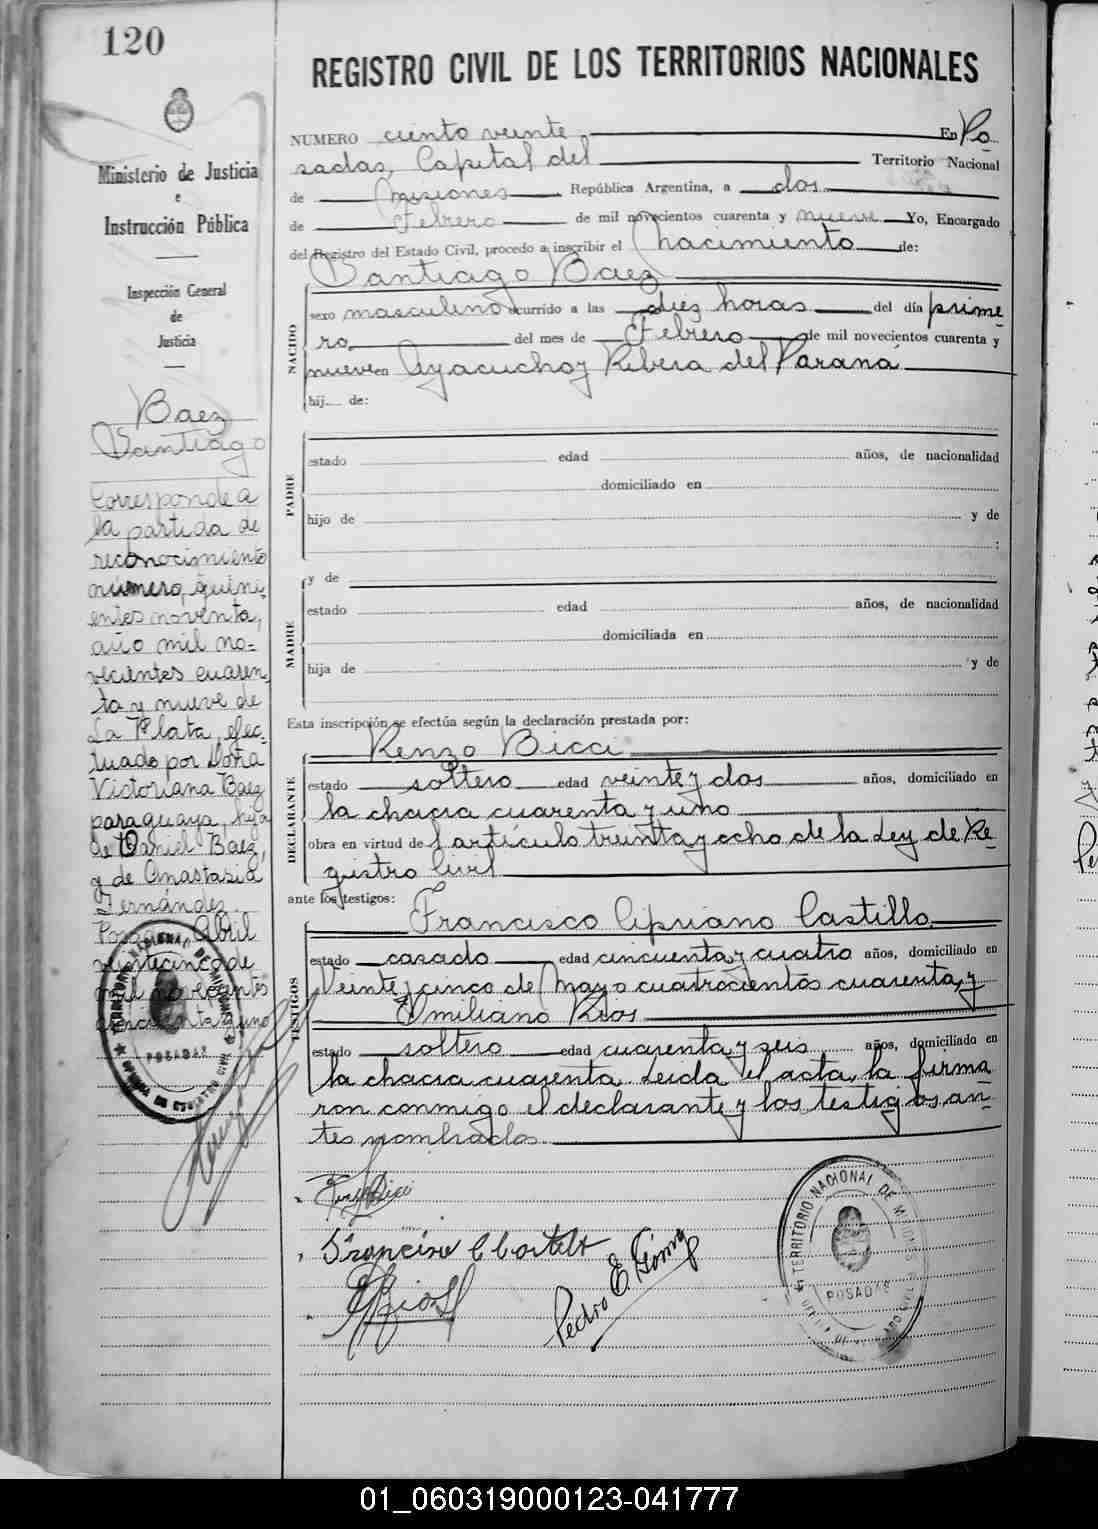 120
Ministerio de Justicia
e
Instrucción Pública
Inspección General
de
Justicia
Baez
Santiago
Corresponde a
la partida de
reconocimiento
número, quini-
entos noventa,
año mil no=
vecientos cuaren-
ta y nueve de
La Plata, efec-
tuado por Doña
Victoriana Baez
paraguaya, hija
de Daniel Baez,
y de Anastasia
Fernández.
Posadas Abril
veinticinco de
mil novecientos
cincuenta y uno
TERRITORIO NACIONAL DE MISIONES
POSADAS
REGISTRO CIVIL DE LOS TERRITORIOS NACIONALES
NUMERO ciento veinte En Po-
sadas, Capital del Territorio Nacional
de Misiones República Argentina, a dos
de Febrero de mil novecientos cuarenta y nueve Yo, Encargado
del Registro del Estado Civil, procedo a inscribir el Nacimiento de:
Santiago Baez
NACIDO
sexo masculino ocurrido a las diez horas del día prime-
ro del mes de Febrero de mil novecientos cuarenta y
nueve en Ayacucho y Ribera del Paraná
hij de:
PADRE
estado edad años, de nacionalidad
domiciliado en
hijo de y de
:
MADRE
y de
estado edad años, de nacionalidad
domiciliada en
hija de y de
Esta inscripción se efectúa según la declaración prestada por:
DECLARANTE
Renzo Bicci
estado soltero edad veinte y dos años, domiciliado en
la chacra cuarenta y uno
obra en virtud del artículo treinta y ocho de la Ley de Re-
gistro Civil
ante los testigos:
TESTIGOS
Francisco Cipriano Castillo
estado casado edad cincuenta y cuatro años, domiciliado en
Veinte y cinco de Mayo cuatrocientos cuarenta, y
Emiliano Rios
estado soltero edad cuarenta y seis años, domiciliado en
la chacra cuarenta. Leida el acta, la firma-
ron conmigo el declarante y los testigos an-
tes nombrados.
Renzo Bicci
Francisco C Castillo
E Rios
Pedro E. Gómez
TERRITORIO NACIONAL DE MISIONES
POSADAS
01_060319000123-041777